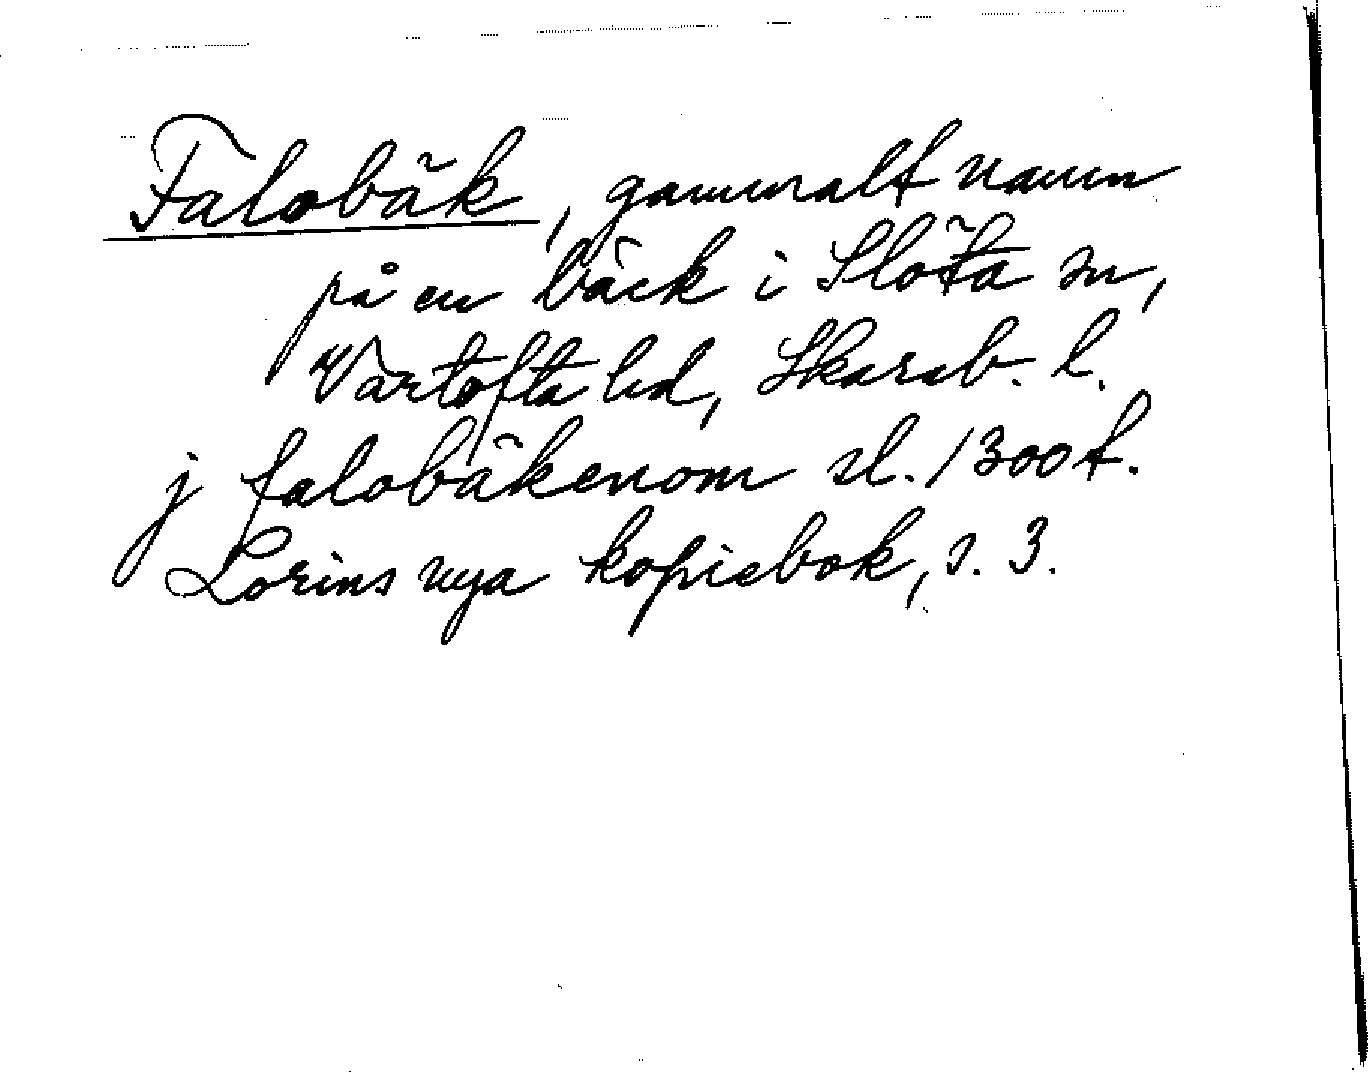 Falobäk, gammalt namn
på en bäck i Slöta sn,
Vartofta hd, Skarab. l.
j falobäkenom sl. 1300 t.
Lorins nya kopiebok, s. 3.